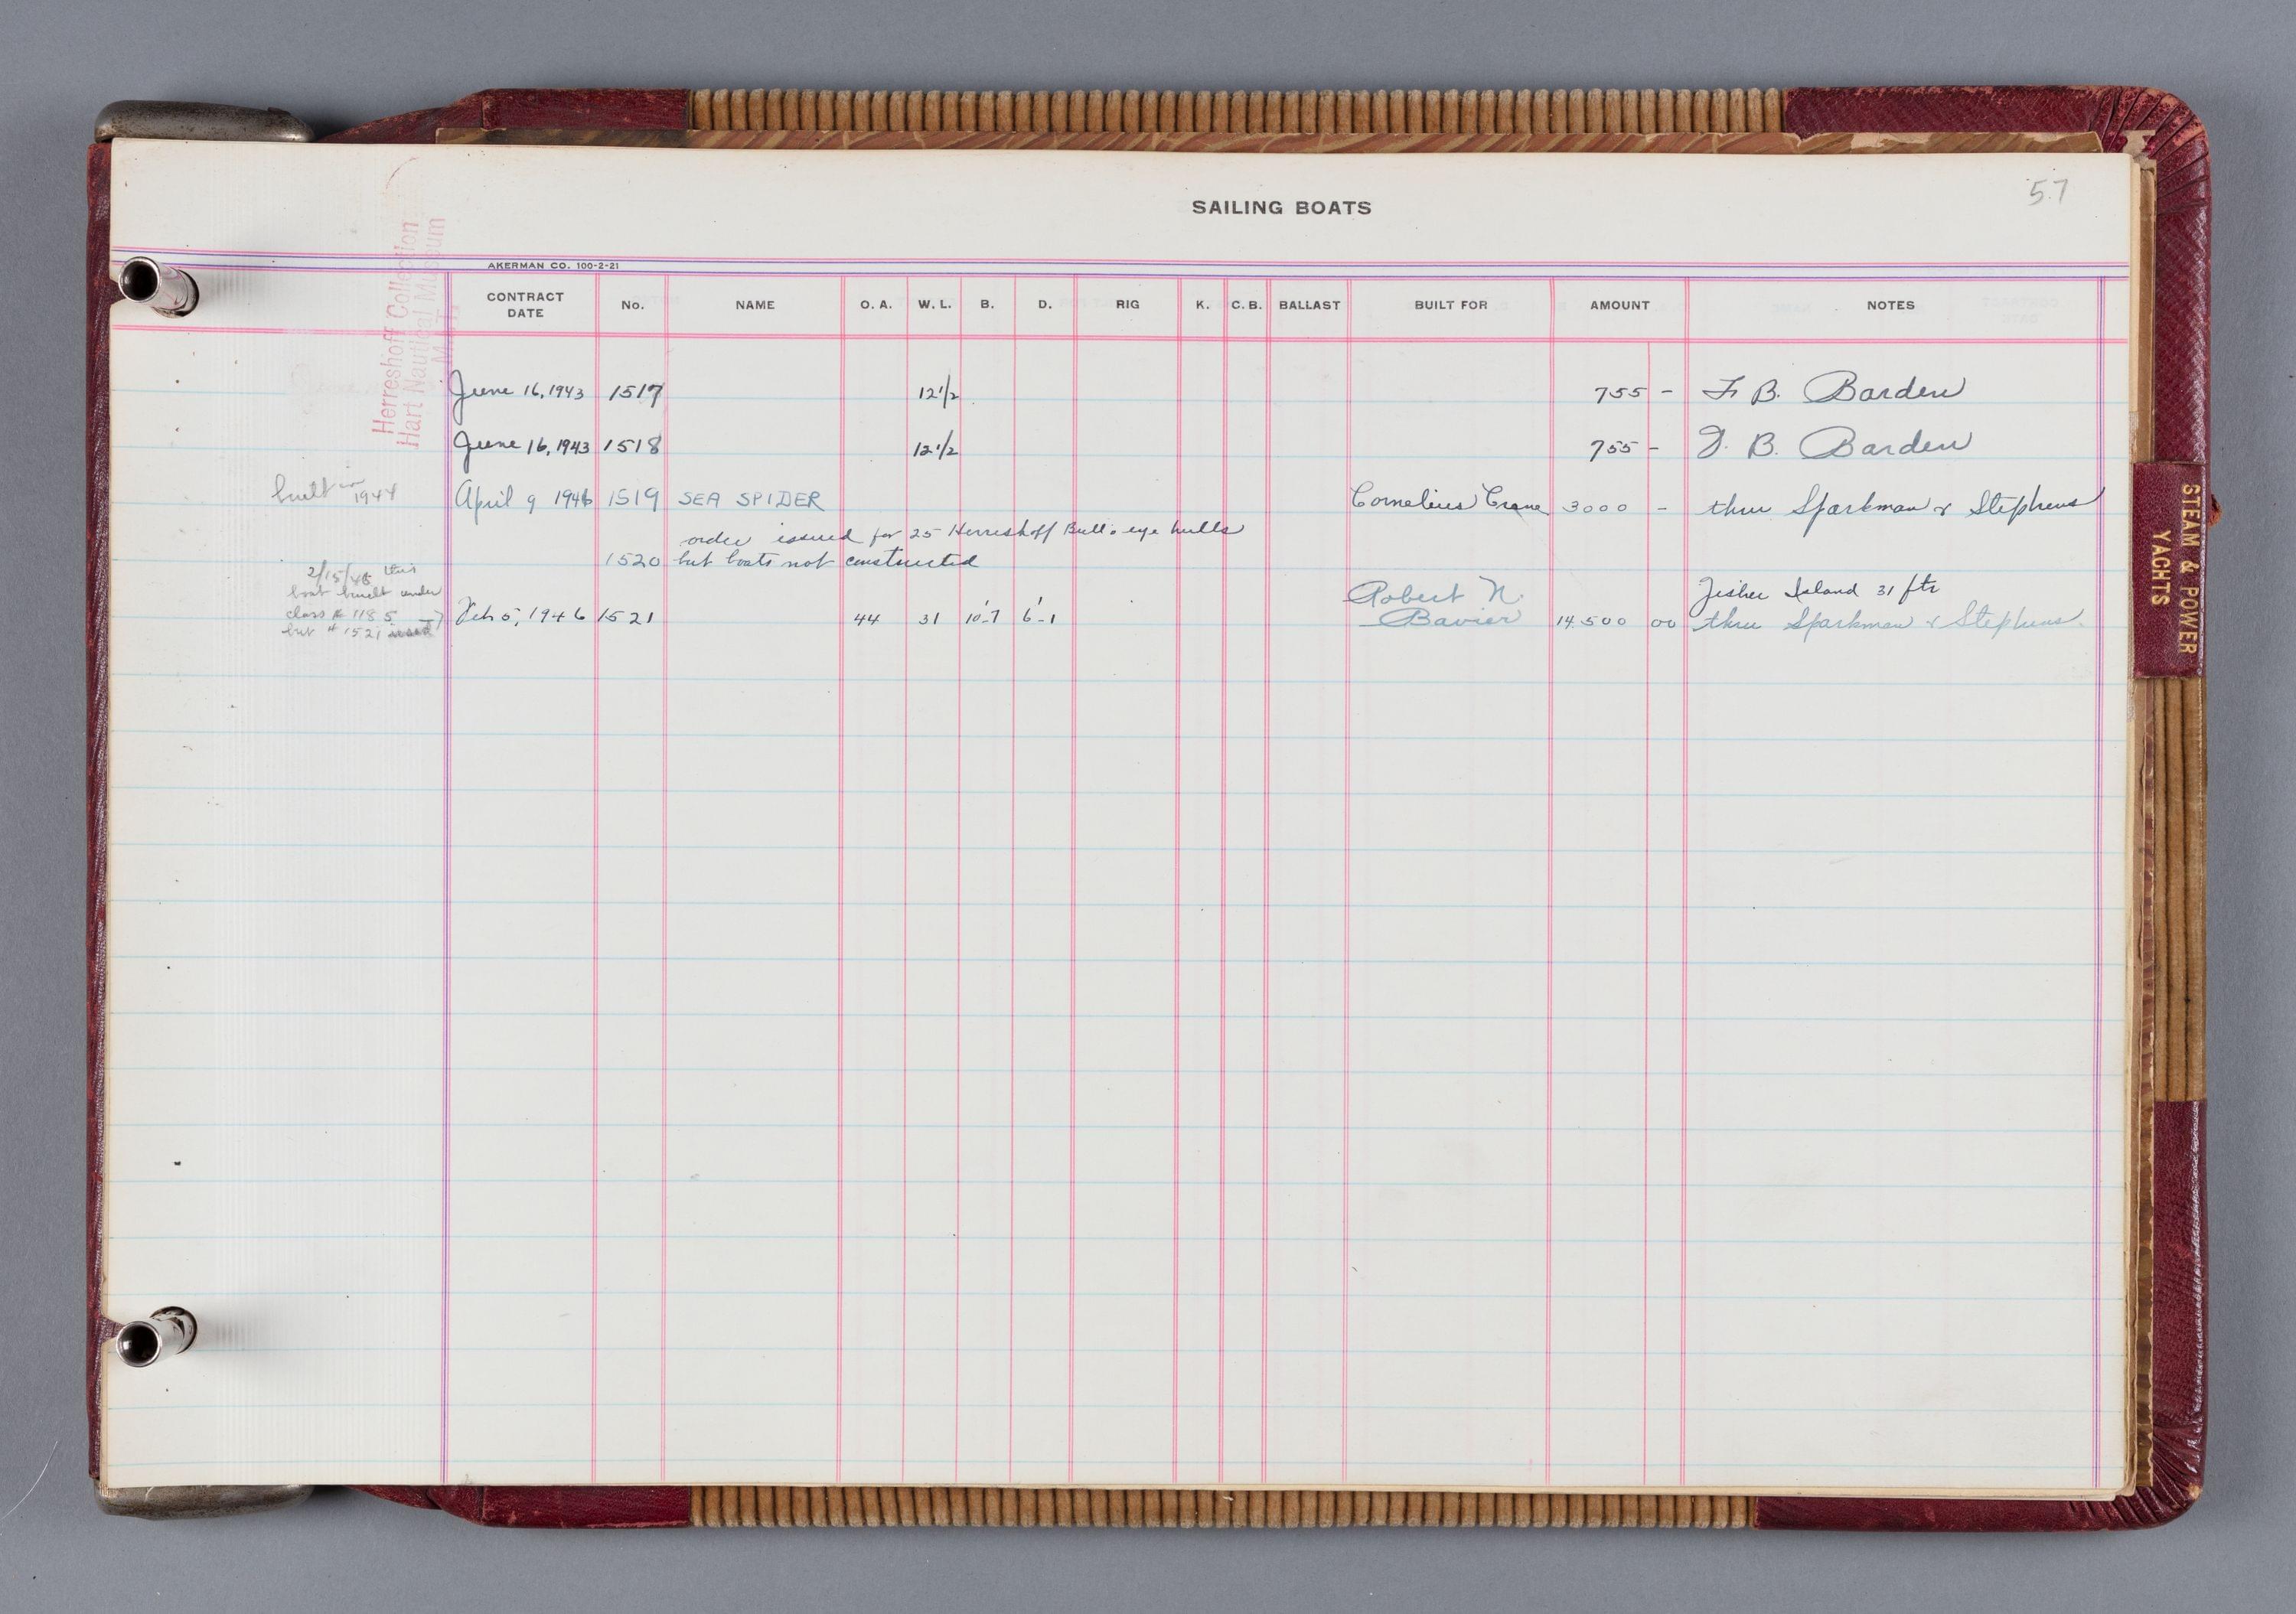 57
SAILING BOATS
Herreshoff Collection
Hart Nautical Museum
M.I.T.
AKERMAN CO. 100-2-21
CONTRACT DATE No. NAME O. A. W. L. B. D. RIG K. C. B. BALLAST BUILT FOR AMOUNT NOTES
June 16, 1943 1517 12 1/2 755 - F. B. Barden
June 16, 1943 1518 12 1/2 755 - F. B. Barden
built in 1944 April 9 1946 1519 SEA SPIDER Cornelius Crane 3000 - thru Sparkman & Stephens
order issued for 25 Herreshoff Bull's eye hulls
1520 but boats not constructed
2/15/46 this
boat built under
class # 1185
but # 1521 used
Feb 5, 1946 1521 44 31 10'-7 6'-1 Robert N. Bavier 14.500 00 Fisher Island 31 ftr
thru Sparkman & Stephens.
STEAM & POWER
YACHTS